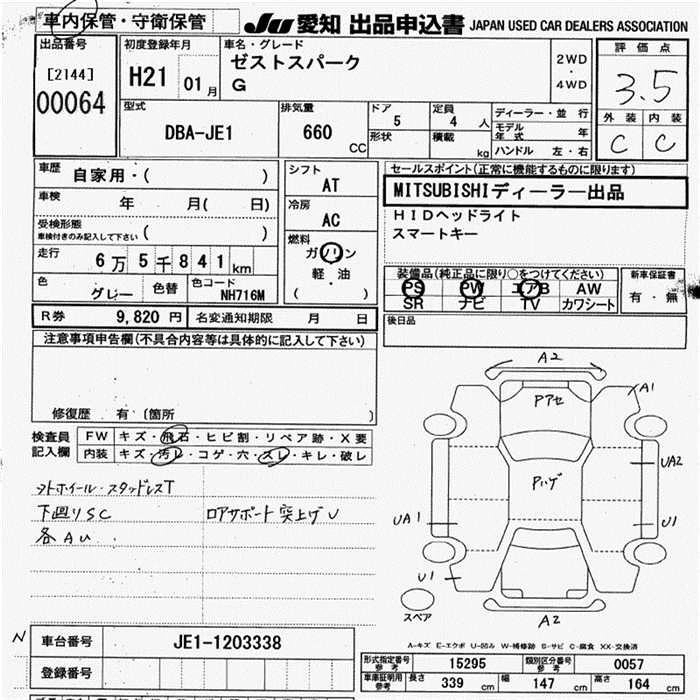 車内保管・守衛保管
JU 愛知 出品申込書 JAPAN USED CAR DEALERS ASSOCIATION
出品番号
[2144]
00064
初度登録年月
H21 01月
車名・グレード
ゼストスパーク
G
2WD
・
4WD
評価点
3.5
外装 内装
C C
型式
DBA-JE1
排気量
660 CC
ドア 5
定員 4 人
形状
積載 kg
ディーラー・並行
モデル年式 年
ハンドル 左・右
車歴 自家用・( )
車検 年 月( 日)
受検形態
車検付きのみ記入して下さい ( )
走行 6万5千841km
色 グレー 色替 色コード NH716M
シフト AT
冷房 AC
燃料
ガソリン
軽・油
( )
セールスポイント(正常に機能するものに限ります)
MITSUBISHIディーラー出品
HIDヘッドライト
スマートキー
装備品(純正品に限り○をつけてください)
PS PW エアB AW
SR ナビ TV カワシート
新車保証書
有・無
後日品
R券 9,820 円 名変通知期限 月 日
注意事項申告欄(不具合内容等は具体的に記入して下さい)
修復歴 有〔箇所 〕
検査員記入欄
FW キズ・飛石・ヒビ割・リペア跡・X要
内装 キズ・汚レ・コゲ・穴・スレ・キレ・破レ
外ホイール・スタッドレスT
下廻りSC ロアサポート突上げU
各AU
A2
A1
Pアセ
UA2
Pハゲ
UA1
U1
U1
A2
スペア
A-キズ E-エクボ U-凹み W-補修跡 S-サビ C-腐食 XX-交換済
N
車台番号 JE1-1203338
登録番号
形式指定番号参考 15295 類別区分番号参考 0057
車庫証明用参考 長さ 339 cm 幅 147 cm 高さ 164 cm